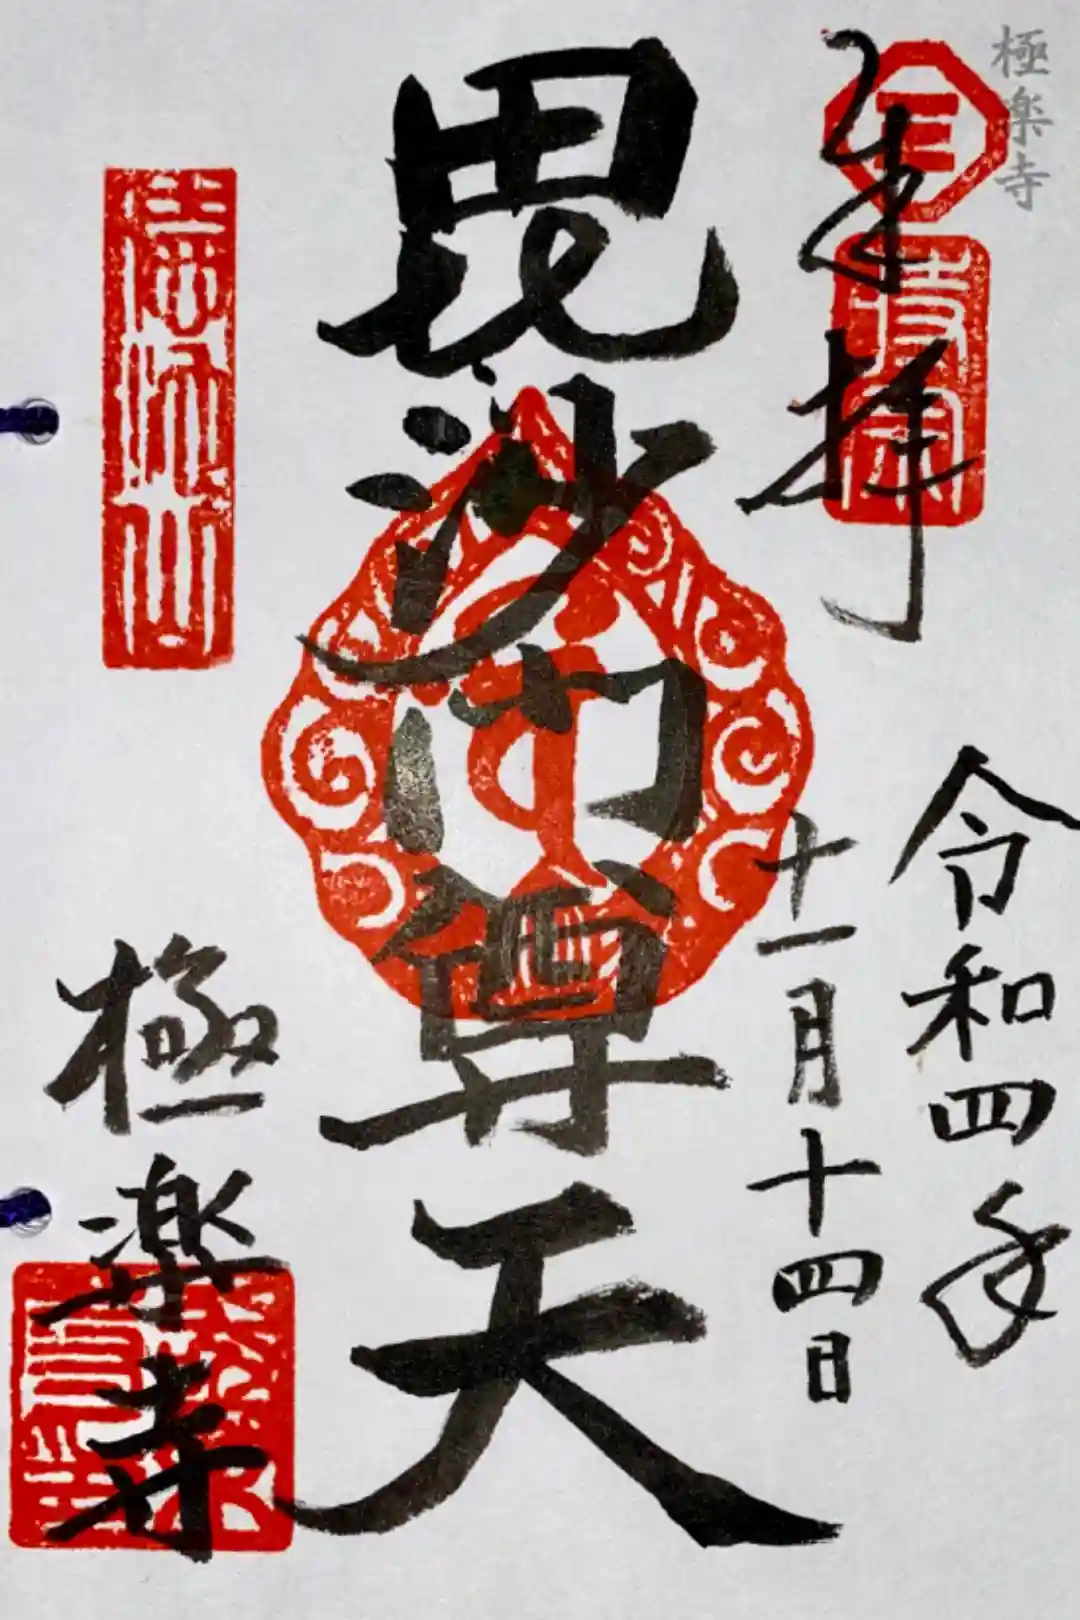 極楽寺
奉拝
令和四年
十一月十四日
毘沙門尊天
法流山
極楽寺